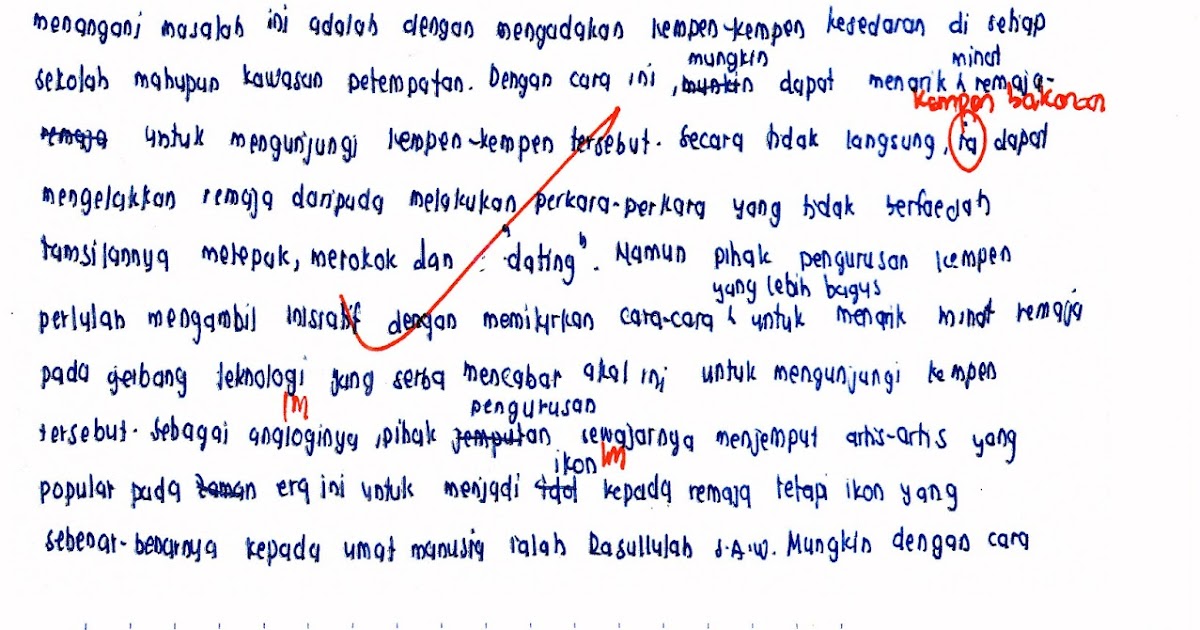 menangani masalah ini adalah dengan mengadakan kempen-kempen kesedaran di setiap
mungkin minat
sekolah mahupun kawasan petempatan. Dengan cara ini, munkin dapat menarik remaja-
kempen bakonan
remaja untuk mengunjungi kempen-kempen tersebut. Secara tidak langsung, ia dapat
mengelakkan remaja daripada melakukan perkara-perkara yang tidak berfaedah
tamsilannya melepak, merokok dan "dating". Namun pihak pengurusan kempen
yang lebih bagus
perlulah mengambil inisiatif dengan memikirkan cara-cara untuk menarik minat remaja
pada gerbang teknologi yang serba mencabar akal ini untuk mengunjungi kempen
lm pengurusan
tersebut. Sebagai analoginya, pihak jemputan sewajarnya menjemput artis-artis yang
ikon lm
popular pada zaman era ini untuk menjadi idol kepada remaja tetapi ikon yang
sebenar-benarnya kepada umat manusia ialah Rasullulah S.A.W. Mungkin dengan cara